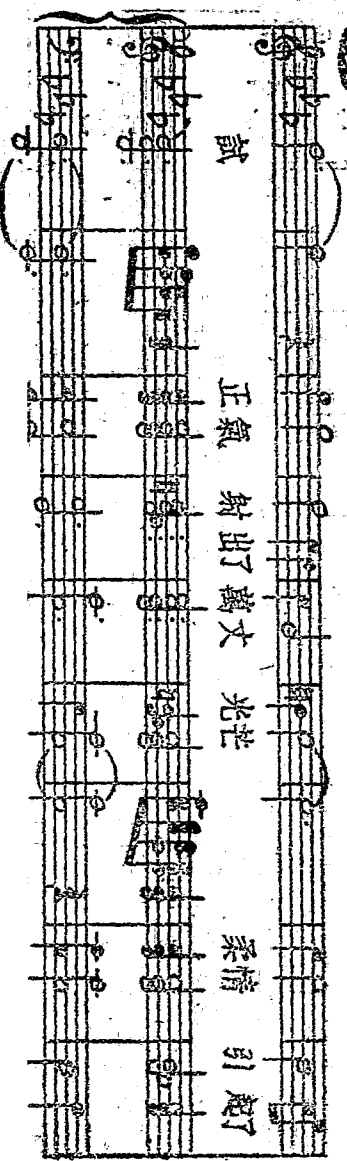 試 正氣 射出了萬丈 光芒 柔情 引起了